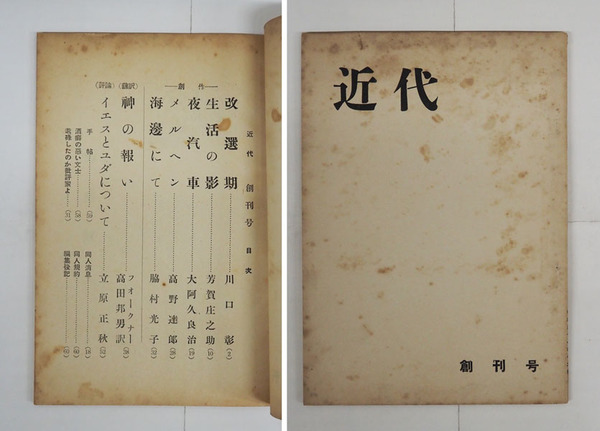 近代 創刊号 目次
―創作―
改選期………川口彰
生活の影………芳賀庄之助
夜汽車………大阿久良治
メルヘン………高野達郎
海邊にて………脇村光子
(飜訳) 神の報い………フォークナー 高田邦男訳
(評論) イエスとユダについて………立原正秋
手帖………
酒癖の悪い文士………
老残したのか批評家よ………
同人消息………
同人規約………
編集後記………
近代
創刊号